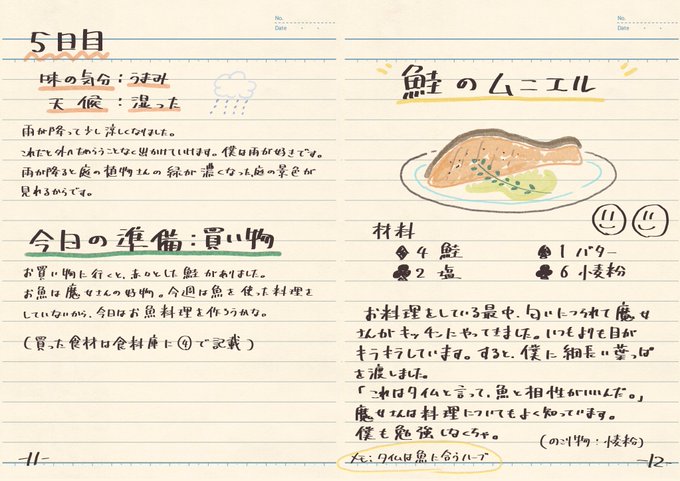 No.
Date
5日目
味の気分:うまみ
天候:湿った
雨が降って少し涼しくなりました。
これだと外へためらうことなく出かけていけます。僕は雨が好きです。
雨が降ると庭の植物さんの緑が濃くなった庭の景色が
見れるからです。
今日の準備:買い物
お買い物に行くと、赤々とした鮭がありました。
お魚は魔女さんの好物。今週は魚を使った料理を
していないから、今日はお魚料理を作ろうかな。
(買った食材は食料庫に④で記載)
-11-
No.
Date
鮭のムニエル
材料
◆4 鮭
♠1 バター
♣2 塩
♣6 小麦粉
お料理をしている最中、匂いにつられて魔女
さんがキッチンにやってきました。いつもよりも目が
キラキラしています。すると、僕に細長い葉っぱ
を渡しました。
「これはタイムと言って、魚と相性がいいんだ。」
魔女さんは料理についてもよく知っています。
僕も勉強しなくちゃ。
(のこり物:小麦粉)
メモ:タイムは魚に合うハーブ
-12-